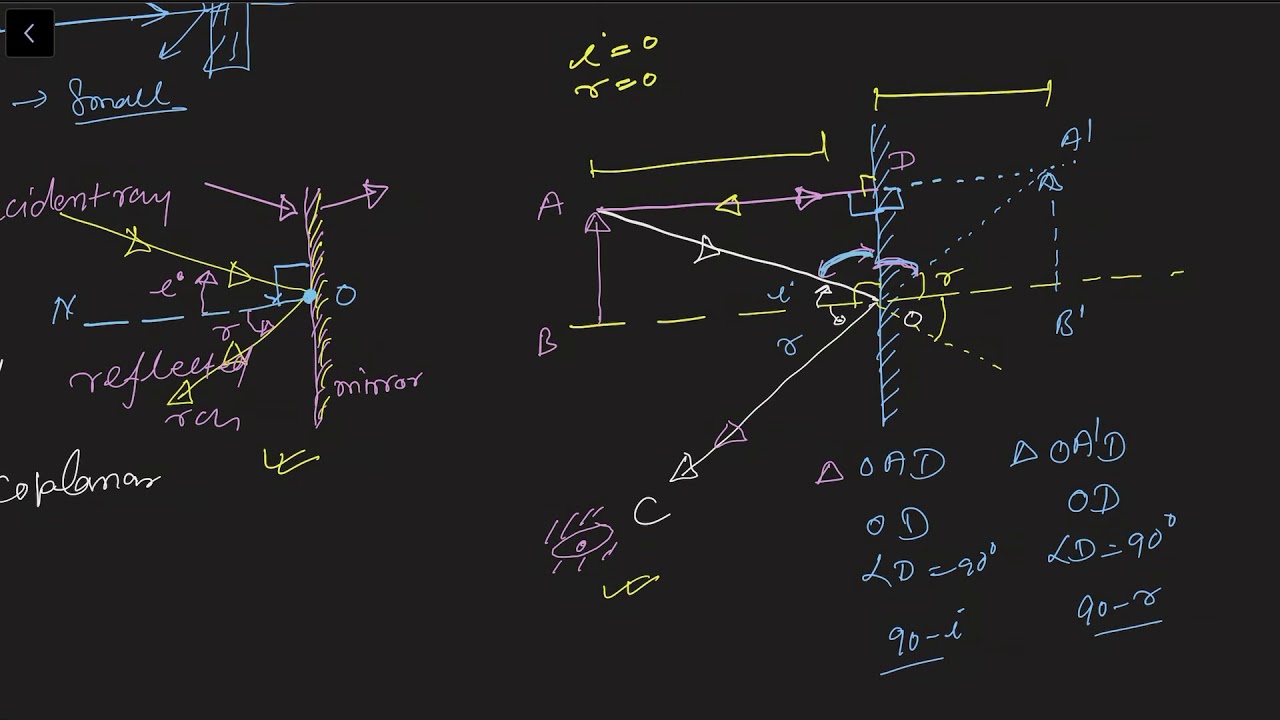 → Small
cident ray
i
N
O
r
reflected
ray
mirror
coplanar
i = 0
r = 0
A
D
A'
B
i
r
O
r
B'
C
Δ OAD
OD
∠D = 90°
90 - i
Δ OA'D
OD
∠D = 90°
90 - r